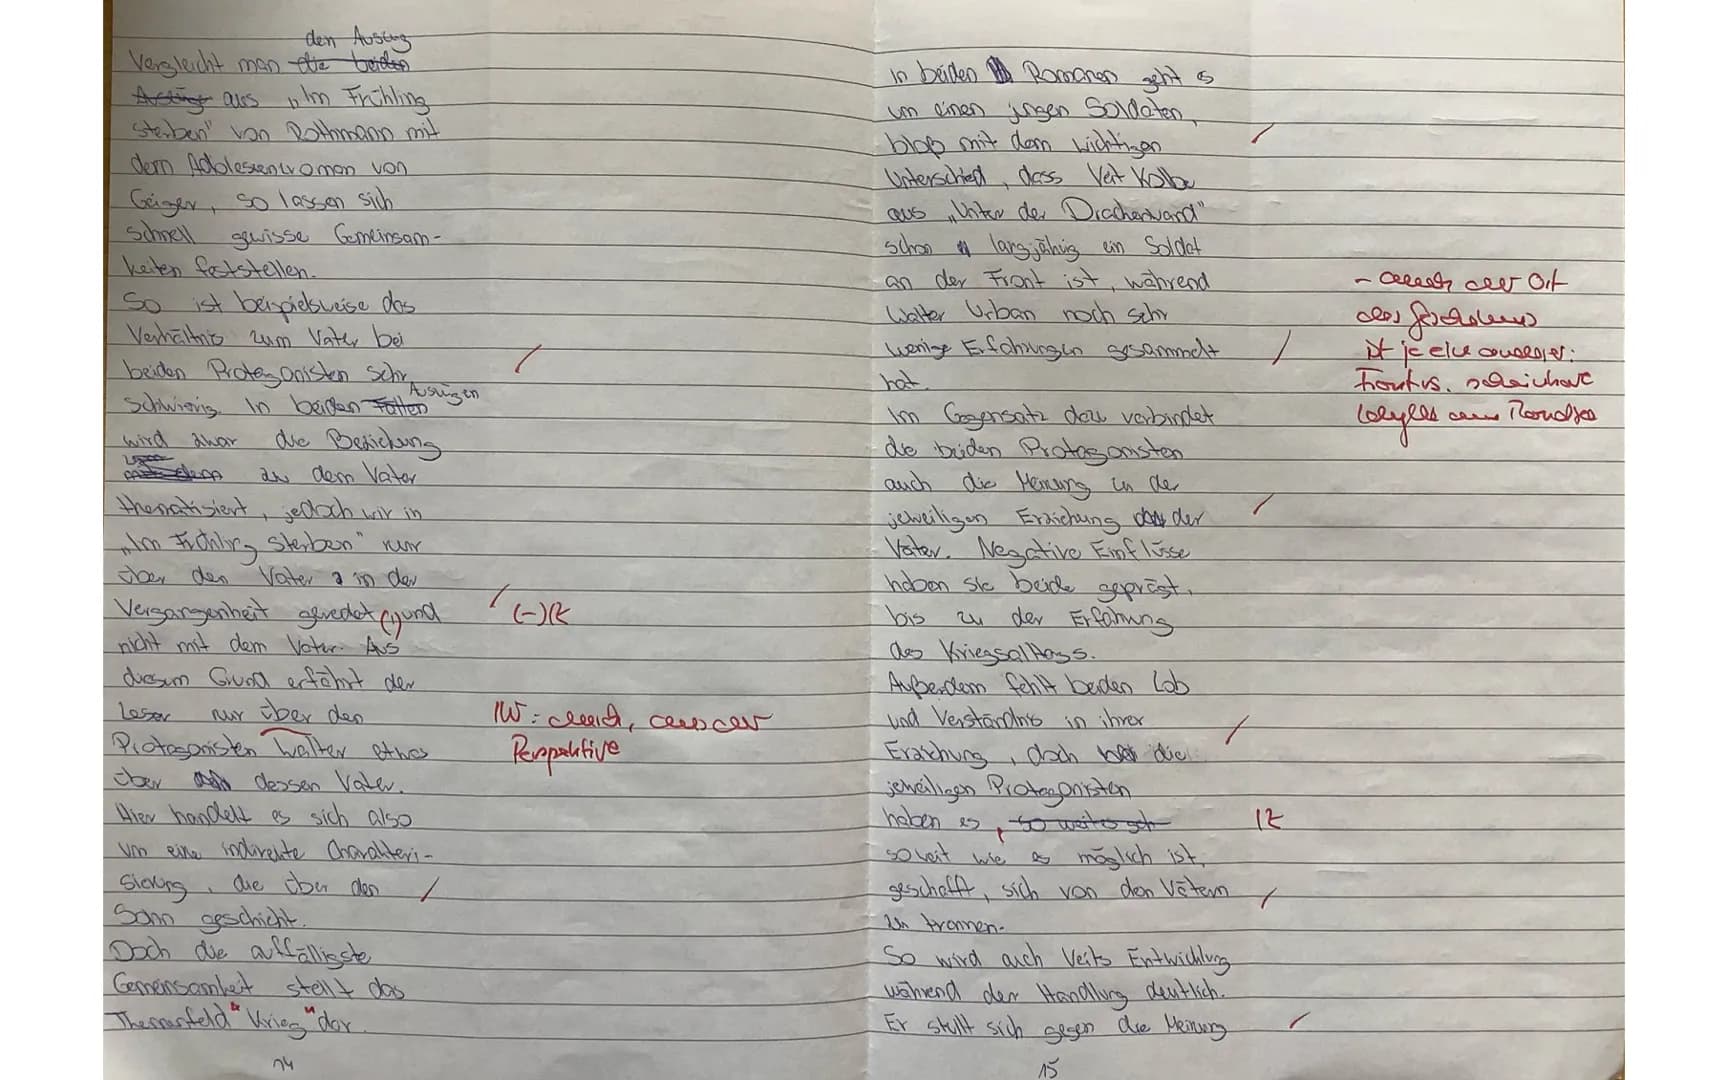 den Auszug
Vergleicht man die beiden
Auszüge aus „Im Frühling
sterben" von Rothmann mit
dem Adoleszenzroman von
Geiger, so lassen sich
schnell gewisse Gemeinsam-
keiten feststellen.
So ist beispielsweise das
Verhältnis zum Vater bei
beiden Protagonisten sehr
Auszügen
schwierig. In beiden Fällen
wird zwar die Beziehung
zu dem Vater
thematisiert, jedoch wir in
„Im Frühling sterben" nur
über den Vater in der
Vergangenheit geredet(,)und
(-)R
nicht mit dem Vater. Aus
diesem Grund erfährt der
Leser nur über den
IW: auch, aus der
Protagonisten Walter etwas
Perspektive
über dessen Vater.
Hier handelt es sich also
um eine indirekte Charakteri-
sierung, die über den
Sohn geschieht.
Doch die auffälligste
Gemeinsamkeit stellt das
Themenfeld "Krieg" dar.
14
In beiden Romanen geht es
um einen jungen Soldaten,
bloß mit dem wichtigen
Unterschied, dass Veit Kolbe
aus „Unter der Drachenwand"
schon langjährig ein Soldat
an der Front ist, während
Walter Urban noch sehr
wenige Erfahrungen gesammelt
hat.
- auch der Ort
des Geschehens
ist je ein anderer:
Front vs. scheinbare
Idylle am Mondsee
Im Gegensatz dazu verbindet
die beiden Protagonisten
auch die Meinung zu der
jeweiligen Erziehung der
Väter. Negative Einflüsse
haben sie beide geprägt,
bis zu der Erfahrung
des Kriegsalltags.
Außerdem fehlt beiden Lob
und Verständnis in ihrer
Erziehung, doch die
jeweiligen Protagonisten
haben es, so weites geh
R
soweit wie es möglich ist,
geschafft, sich von den Vätern
zu trennen.
So wird auch Veits Entwicklung
während der Handlung deutlich.
Er stellt sich gegen die Meinung
15